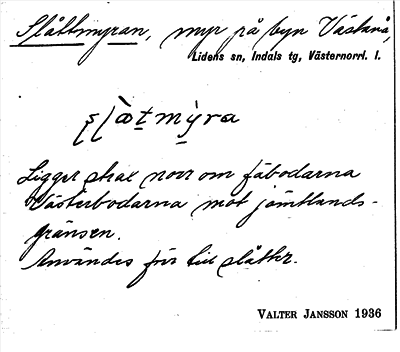 Slåttmyran, myr på byn Västanå,
Lidens sn, Indals tg, Västernorrl. l.
Ligger strax norr om fäbodarna
Västerbodarna mot jämtlands-
gränsen.
Användes förr till slåtter.
VALTER JANSSON 1936